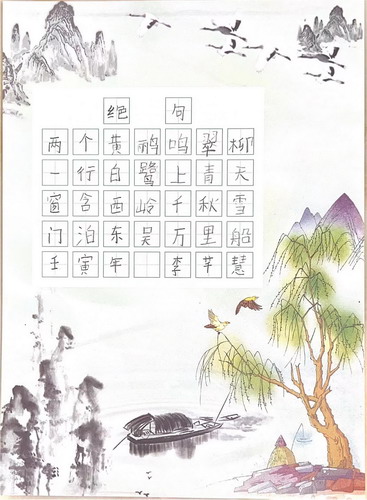 绝句
两个黄鹂鸣翠柳
一行白鹭上青天
窗含西岭千秋雪
门泊东吴万里船
壬寅年 李芊慧